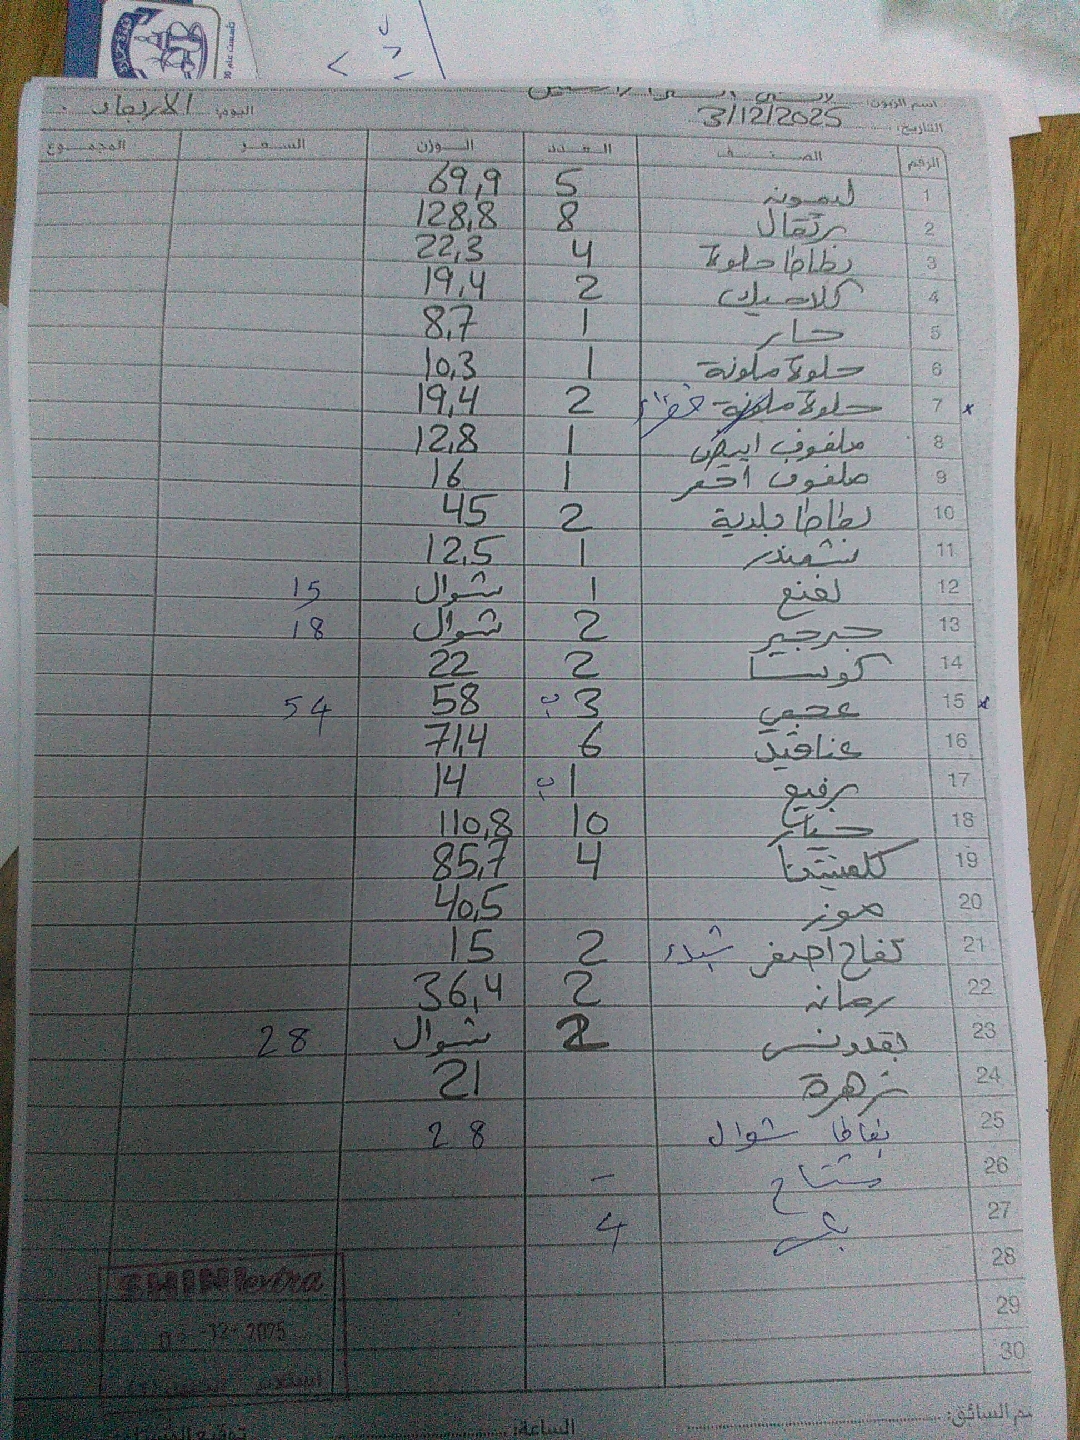 اسم الزبون:
التاريخ: 3/12/2025 اليوم: الاربعاء
الرقم الصنف العدد الوزن السعر المجموع
1 ليمونه 5 69,9
2 برتقال 8 128,8
3 بطاطا حلوة 4 22,3
4 كلاسيك 2 19,4
5 حار 1 8,7
6 حلوة ملونة 1 10,3
7 حلوة ملونة خضراء 2 19,4
8 ملفوف ابيض 1 12,8
9 ملفوف احمر 1 16
10 بطاطا بلدية 2 45
11 شمندر 1 12,5
12 نعنع 1 شوال 15
13 جرجير 2 شوال 18
14 كوسا 2 22
15 عجمي 3 ب 58 54
16 عناقيد 6 71,4
17 رفيع 1 ب 14
18 خيار 10 110,8
19 كلمنتينا 4 85,7
20 موز 40,5
21 تفاح اصفر 2 15
22 رمانه 2 36,4
23 بقدونس 2 شوال 28
24 زهرة 21
25 بطاطا شوال 28
26 مشتاح -
27 4
28
29
30
SHINI extra
-12-2025
الساعة: